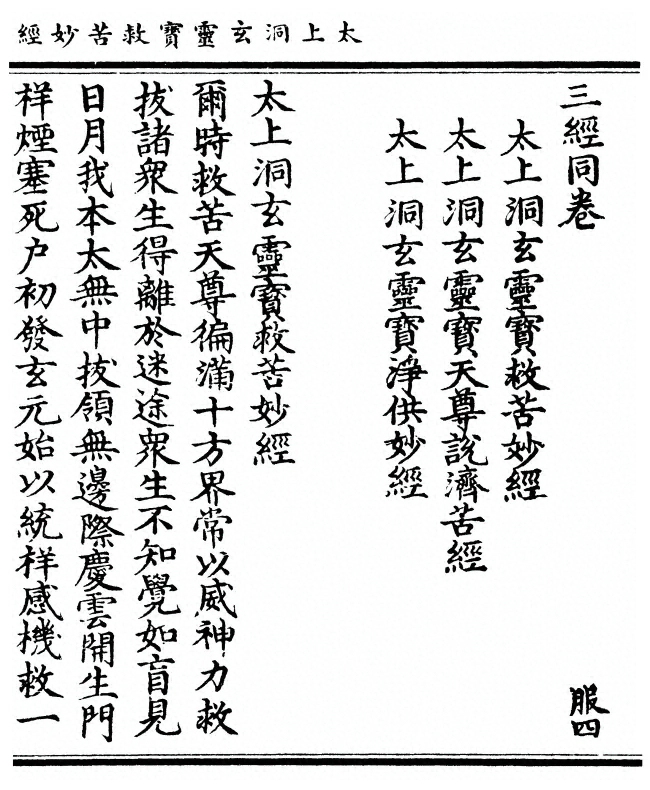 太上洞玄靈寶救苦妙經
三經同卷
服四
太上洞玄靈寶救苦妙經
太上洞玄靈寶天尊說濟苦經
太上洞玄靈寶淨供妙經
太上洞玄靈寶救苦妙經
爾時救苦天尊徧滿十方界常以威神力救
拔諸衆生得離於迷途衆生不知覺如盲見
日月我本太無中拔領無邊際慶雲開生門
祥煙塞死户初發玄元始以統祥感機救一